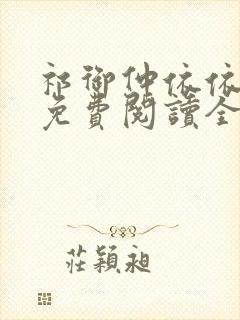 祁御仲依依
免費閱讀全
莊穎昶